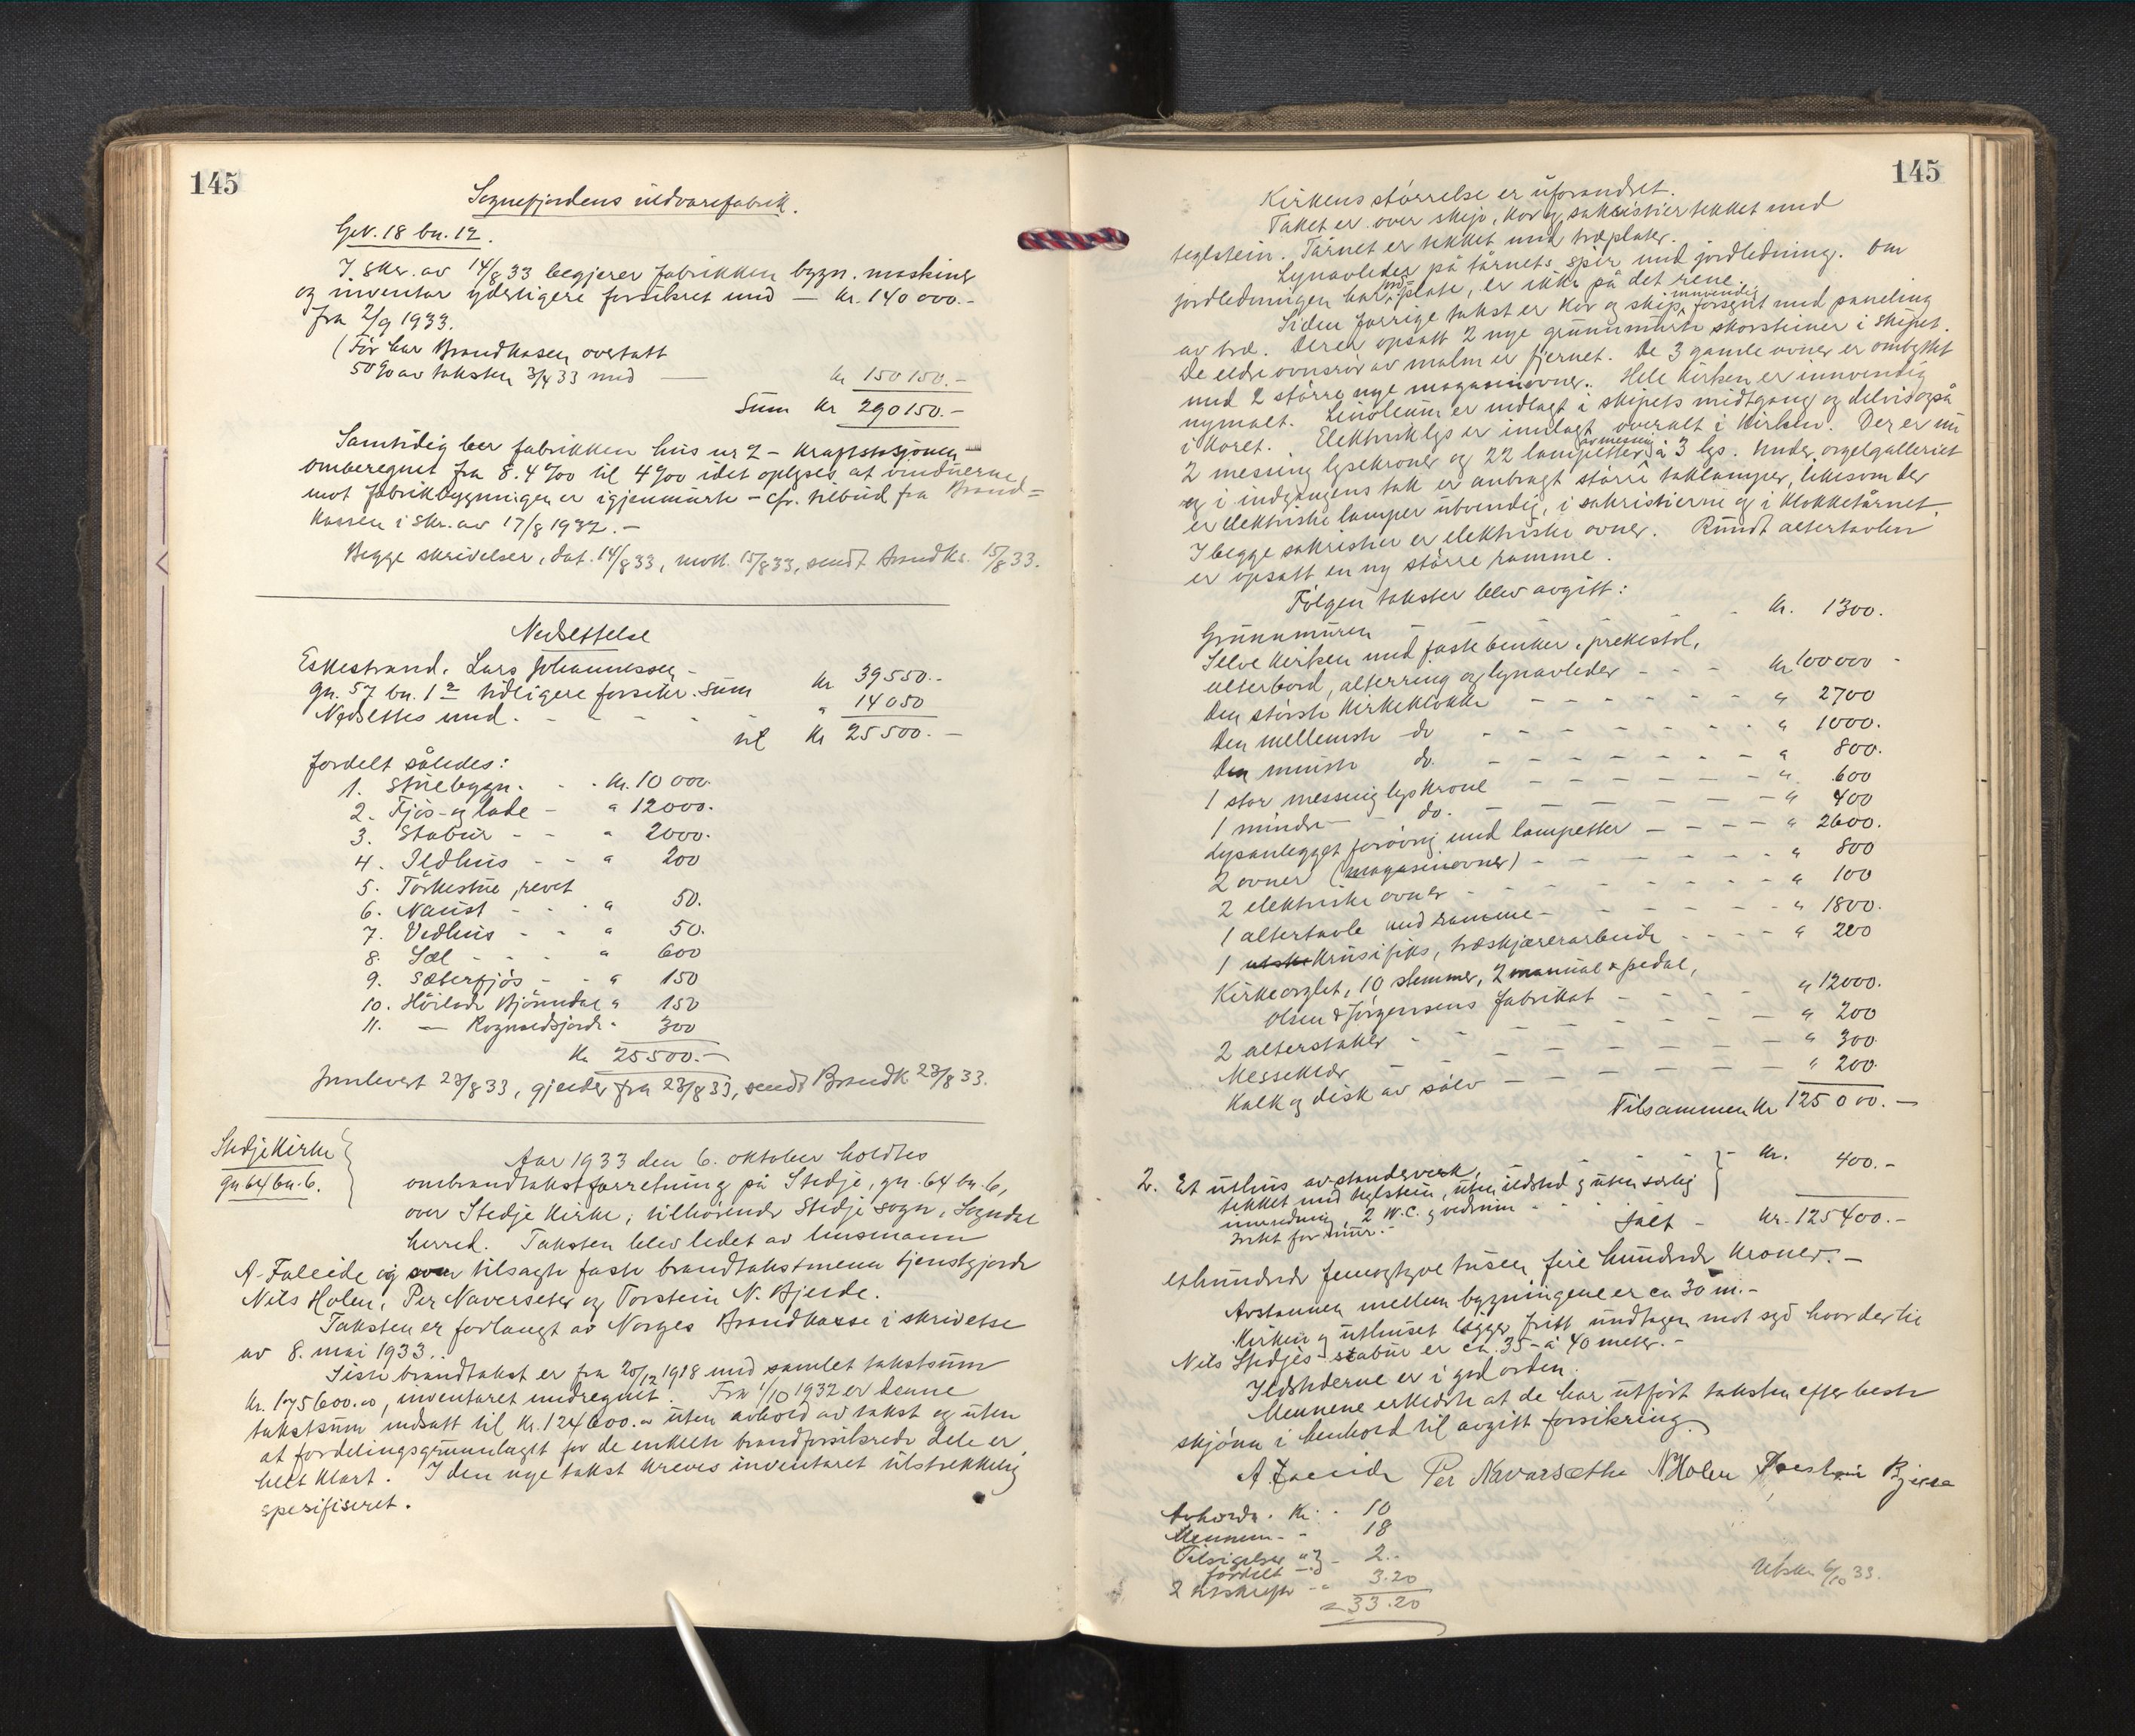 145
Sognefjordens uldvarefabrik.
Gn. 18 bn. 12.
I skr. av 14/8 33 begjerer fabrikken bygn. maskiner
og inventar yderligere forsikret med — Kr. 140 000.-
fra 2/9 1933.
(Før har Brandkassen overtatt
50% av taksten 3/4 33 med — kr 150 150.-
Sum Kr 290150.-
Samtidig ber fabrikken hus nr 2 - Kraftstasjonen -
omberegnet fra 8.4 ‰ til 4 ‰ idet oplyses at vinduerne
mot fabrikbygningen er igjenmurte - cfr. tilbud fra Brand=
kassen i skr. av 17/8 1932.-
Begge skrivelser, dat. 14/8 33, mott. 15/8 33, sendt Brandks. 15/8 33.
Nedsettelse
Eskestrand. Lars Johannessen -
gn. 57 bn. 1² tidligere forsikr. sum kr 39550.-
Nedsettes med - - - - " 14050
til Kr 25500.-
fordelt således:
1. Stuebygn. - - Kr. 10 000.
2. Fjøs- og lade - " 12000.
3. Stabur - - " 2000.
4. Ildhus - - " 200
5. Tørkestue, revet
6. Naust - - - " 50.
7. Vedhus - - " 50.
8. Sæl - - - " 600
9. Sæterfjøs - - " 150
10. Höilade Bjönndal " 150
11. — Rognaldsjorde - 300
Kr 25500.-
Innlevert 23/8 33, gjelder fra 23/8 33, sendt Brandk 23/8 33.
Stedje Kirke
gn 64 bn. 6.
Aar 1933 den 6. oktober holdtes
ombrandtakstforretning på Stedje, gn. 64 bn. 6,
over Stedje Kirke, tilhørende Stedje sogn, Sogndal
herred. Taksten blev ledet av lensmann
A. Faleide og som tilsagte faste brandtakstmenn tjenstgjorde
Nils Holen, Per Naversete og Torstein N. Bjelde.
Taksten er forlangt av Norges Brandkasse i skrivelse
av 8. mai 1933.
Siste brandtakst er fra 20/12 1918 med samlet takstsum
Kr. 175600.00, inventaret medregnet. Fra 1/10 1932 er denne
takstsum nedsatt til Kr. 124600.00 uten avhold av takst og uten
at fordelingsgrunnlaget for de enkelte brandforsikrede dele er
helt klart. I den nye takst kreves inventaret tilstrekkelig
spesifiseret.
145
Kirkens størrelse er uforandret.
Taket er over skip, kor og sakristier tekket med
teglstein. Tårnet er tekket med træplater.
Lynavleder på tårnets spir med jordledning. Om
jordledningen har jordplate, er ikke på det rene.
Siden forrige takst er Kor og skip innvendig forsynt med paneling
av træ. Der er opsatt 2 nye grunnmurte skorsteiner i skipet.
De eldre ovnsrør av malm er fjernet. De 3 gamle ovner er ombyttet
med 2 større nye magasinovner. Hele Kirken er innvendig
nymalt. Linoleum er indlagt i skipets midtgang og delvis også
i koret. Elektrisk lys er innlagt overalt i Kirken. Der er nu
2 messing lysekroner og 22 lampetter av messing à 3 lys. Under orgelgalleriet
og i indgangens tak er anbragt større taklamper, likesom der
er elektriske lamper utvendig, i sakristierne og i klokketårnet.
I begge sakristier er elektriske ovner. Rundt altertavlen
er opsatt en ny større ramme.
Følgen takster blev avgitt:
Grunnmuren - - - Kr. 1300.
Selve Kirken med faste benker, prekestol,
alterbord, alterring og lynavleder - - - Kr 100000 -
Den største Kirkeklokke - - - - " 2700
Den mellemste do - - - - " 1000.
Den minste do. - - - - " 800.
1 stor messing lyskrone - - - - " 600
1 mindre — do. - - - - " 400
Lysanlegget forøvrig med lampetter - - - - " 2600.
2 ovner (magasinovner) - - - - " 800
2 elektriske ovner - - - - " 100
1 altertavle med ramme - - - - " 1800.
1 Krusifiks, træskjærerarbeide - - - - " 200
Kirkeorglet, 10 stemmer, 2 manual & pedal,
Olsen & Jörgensens fabrikat - - - " 12000.
2 alterstaker - - - - " 200
Messeklær - - - - " 300
Kalk og disk av sølv - - - - " 200.
Tilsammen Kr 125000.-
2. Et uthus av standsverk,
tekket med teglstein, uten ildsted og uten særlig
innredning, 2 W.C. og vedrum - - - Kr. 400.-
Ialt - Kr. 125400.-
ethundrede femogtyve tusen fire hundrede Kroner.-
Avstannen mellem bygningene er ca 30 m.-
Kirken og uthuset ligger fritt undtagen mot syd hvor der til
Nils Stedjes stabur er ca. 35 à 40 meter.-
Ildstederne er i god orden.
Mennene erklærte at de har utført taksten efter beste
skjønn i henhold til avgitt forsikring.
A Faleide Per Navarsethe N. Holen Torstein Bjelde
Avholdn. Kr. - 10
Mennene - - 18
Tilsigelser " 3 - 2.-
fordelt
2 utskrifter - " 3.20
= 33.20
Utskr 6/10 33.